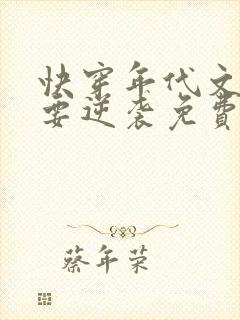 快穿年代文
要逆袭免費
蔡年荣